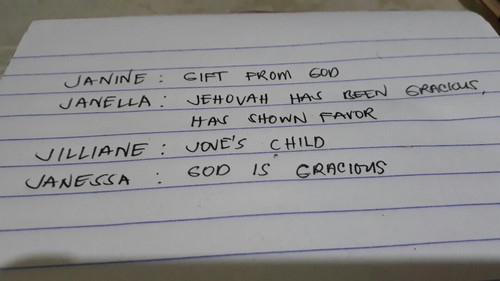 JANINE : GIFT FROM GOD
JANELLA : JEHOVAH HAS BEEN GRACIOUS,
HAS SHOWN FAVOR
JILLIANE : JOVE'S CHILD
JANESSA : GOD IS GRACIOUS